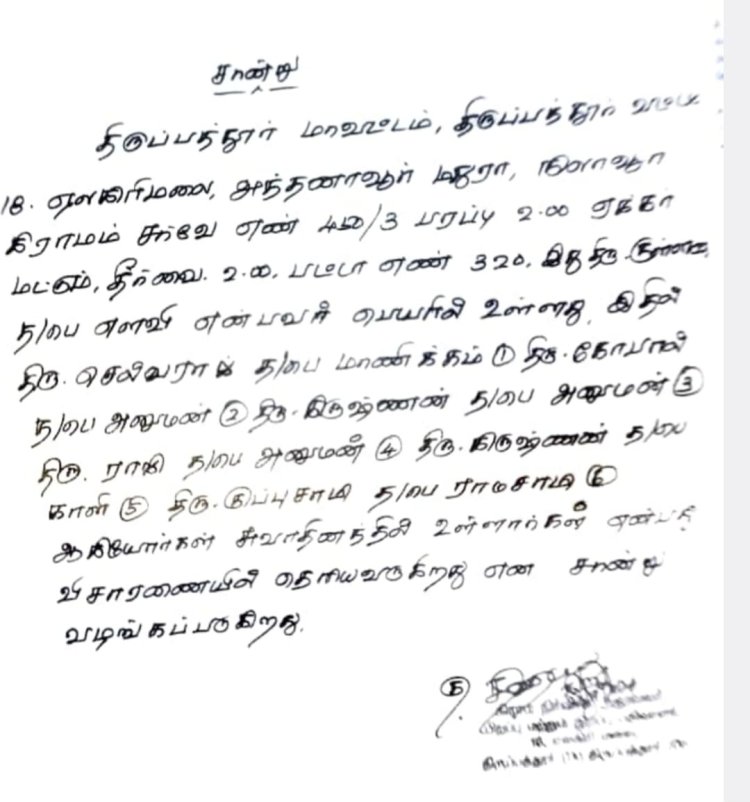 சான்று
திருப்பத்தூர் மாவட்டம், திருப்பத்தூர் வட்டம்
18. ஏலகிரிமலை, அத்தனாவூர் மதுரா, நிலாவூர்
கிராமம் சர்வே எண் பரப்பு 2.00 ஏக்கர்
மட்டும், தீர்வை. 2.00, பட்டா எண் 320, இது திரு.
த/பை எளவி என்பவர் பெயரில் உள்ளது. இதில்
திரு. செல்வராஜ் த/பை மாணிக்கம் ① திரு. கோபால்
த/பை அனுமன் ② திரு. கிருஷ்ணன் த/பை அனுமன் ③
திரு. ராஜி த/பை அனுமன் ④ திரு. கிருஷ்ணன் த/பை
காளி ⑤ திரு. குப்புசாமி த/பை ராமசாமி ⑥
ஆகியோர்கள் சுவாதினத்தில் உள்ளார்கள் என்பது
விசாரணையில் தெரியவருகிறது என சான்று
வழங்கப்படுகிறது.